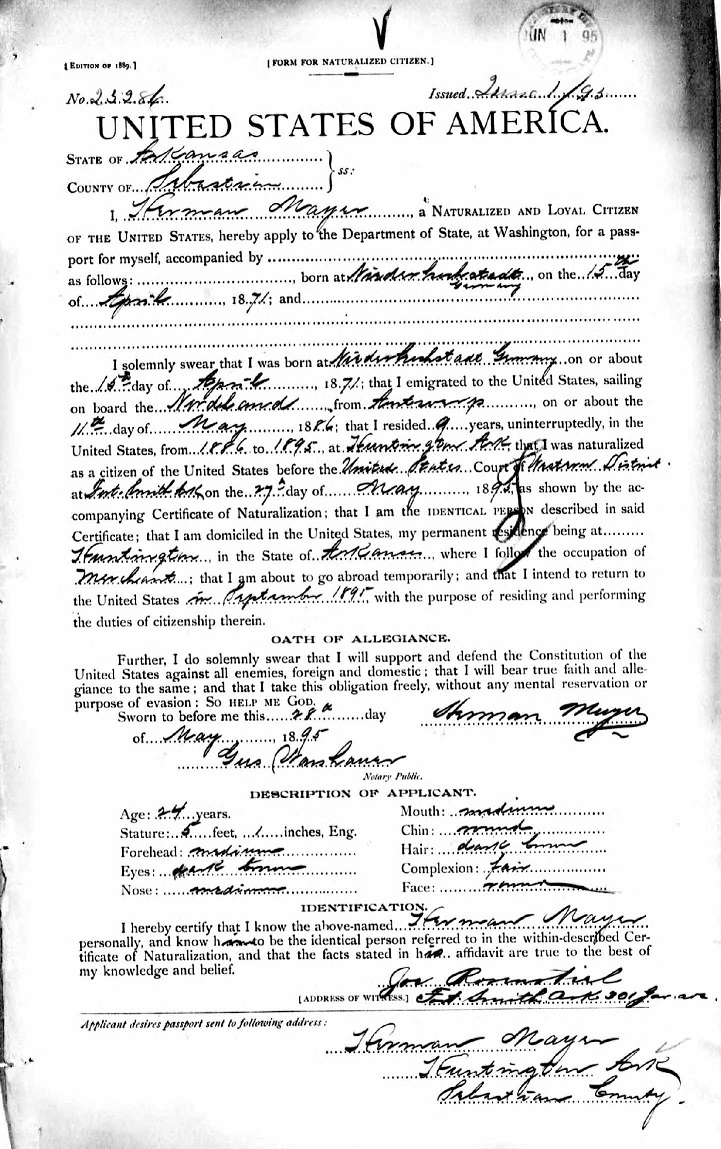 JUN 1 95
[EDITION OF 1889.]
[FORM FOR NATURALIZED CITIZEN.]
No. 23286. Issued June 1/95
UNITED STATES OF AMERICA.
STATE OF Arkansas
COUNTY OF Sebastian } ss:
I, Herman Mayer, a NATURALIZED AND LOYAL CITIZEN
OF THE UNITED STATES, hereby apply to the Department of State, at Washington, for a pass-
port for myself, accompanied by
as follows: , born at Germany, on the 15th day
of April, 1871; and
I solemnly swear that I was born at Germany on or about
the 15th day of April, 1871; that I emigrated to the United States, sailing
on board the Nordland from Antwerp, on or about the
11th day of May, 1886; that I resided 9 years, uninterruptedly, in the
United States, from 1886 to 1895, at Huntington Ark, that I was naturalized
as a citizen of the United States before the United States Court of Western District
at Fort Smith Ark on the 27th day of May, 1895, as shown by the ac-
companying Certificate of Naturalization; that I am the IDENTICAL PERSON described in said
Certificate; that I am domiciled in the United States, my permanent residence being at
Huntington, in the State of Arkansas, where I follow the occupation of
Merchant; that I am about to go abroad temporarily; and that I intend to return to
the United States in September 1895, with the purpose of residing and performing
the duties of citizenship therein.
OATH OF ALLEGIANCE.
Further, I do solemnly swear that I will support and defend the Constitution of the
United States against all enemies, foreign and domestic; that I will bear true faith and alle-
giance to the same; and that I take this obligation freely, without any mental reservation or
purpose of evasion: SO HELP ME GOD.
Sworn to before me this 28th day Herman Mayer
of May, 1895
Gus Warshauer
Notary Public.
DESCRIPTION OF APPLICANT.
Age: 24 years. Mouth: medium
Stature: 5 feet, 1 inches, Eng. Chin: round
Forehead: medium Hair: dark brown
Eyes: dark brown Complexion: fair
Nose: medium Face: round
IDENTIFICATION.
I hereby certify that I know the above-named Herman Mayer
personally, and know h to be the identical person referred to in the within-described Cer-
tificate of Naturalization, and that the facts stated in h affidavit are true to the best of
my knowledge and belief.
Joe Rosenstiel
[ADDRESS OF WITNESS.] Ft Smith Ark 301 Gar. ave.
Applicant desires passport sent to following address:
Herman Mayer
Huntington Ark
Sebastian County.